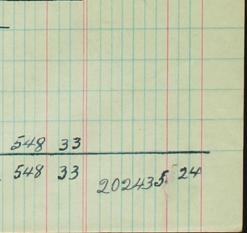 548 33
548 33 202435 24